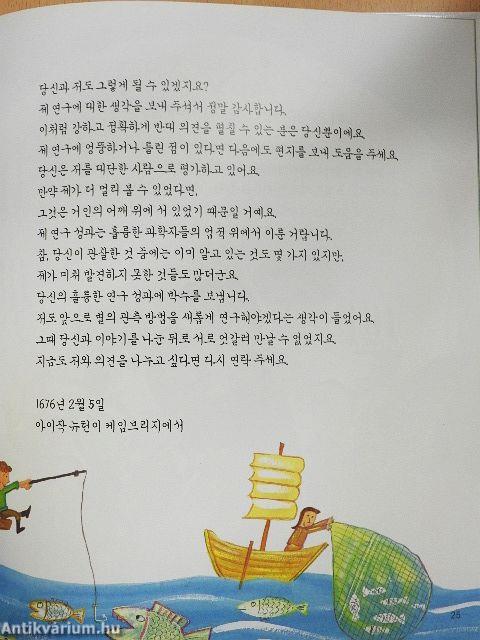 당신과 저도 그렇게 될 수 있겠지요?
제 연구에 대한 생각을 보내 주셔서 정말 감사합니다.
이처럼 강하고 정확하게 반대 의견을 펼칠 수 있는 분은 당신뿐이에요.
제 연구에 엉뚱하거나 틀린 점이 있다면 다음에도 편지를 보내 도움을 주세요.
당신은 저를 대단한 사람으로 평가하고 있어요.
만약 제가 더 멀리 볼 수 있었다면,
그것은 거인의 어깨 위에 서 있었기 때문일 거예요.
제 연구 성과는 훌륭한 과학자들의 업적 위에서 이룬 거랍니다.
참, 당신이 관찰한 것 중에는 이미 알고 있는 것도 몇 가지 있지만,
제가 미처 발견하지 못한 것들도 많더군요.
당신의 훌륭한 연구 성과에 박수를 보냅니다.
저도 앞으로 별의 관측 방법을 새롭게 연구해야겠다는 생각이 들었어요.
그때 당신과 이야기를 나눈 뒤로 서로 엇갈려 만날 수 없었지요.
지금도 저와 의견을 나누고 싶다면 다시 연락 주세요.
1676년 2월 5일
아이작 뉴턴이 케임브리지에서
25
Antikvárium.hu